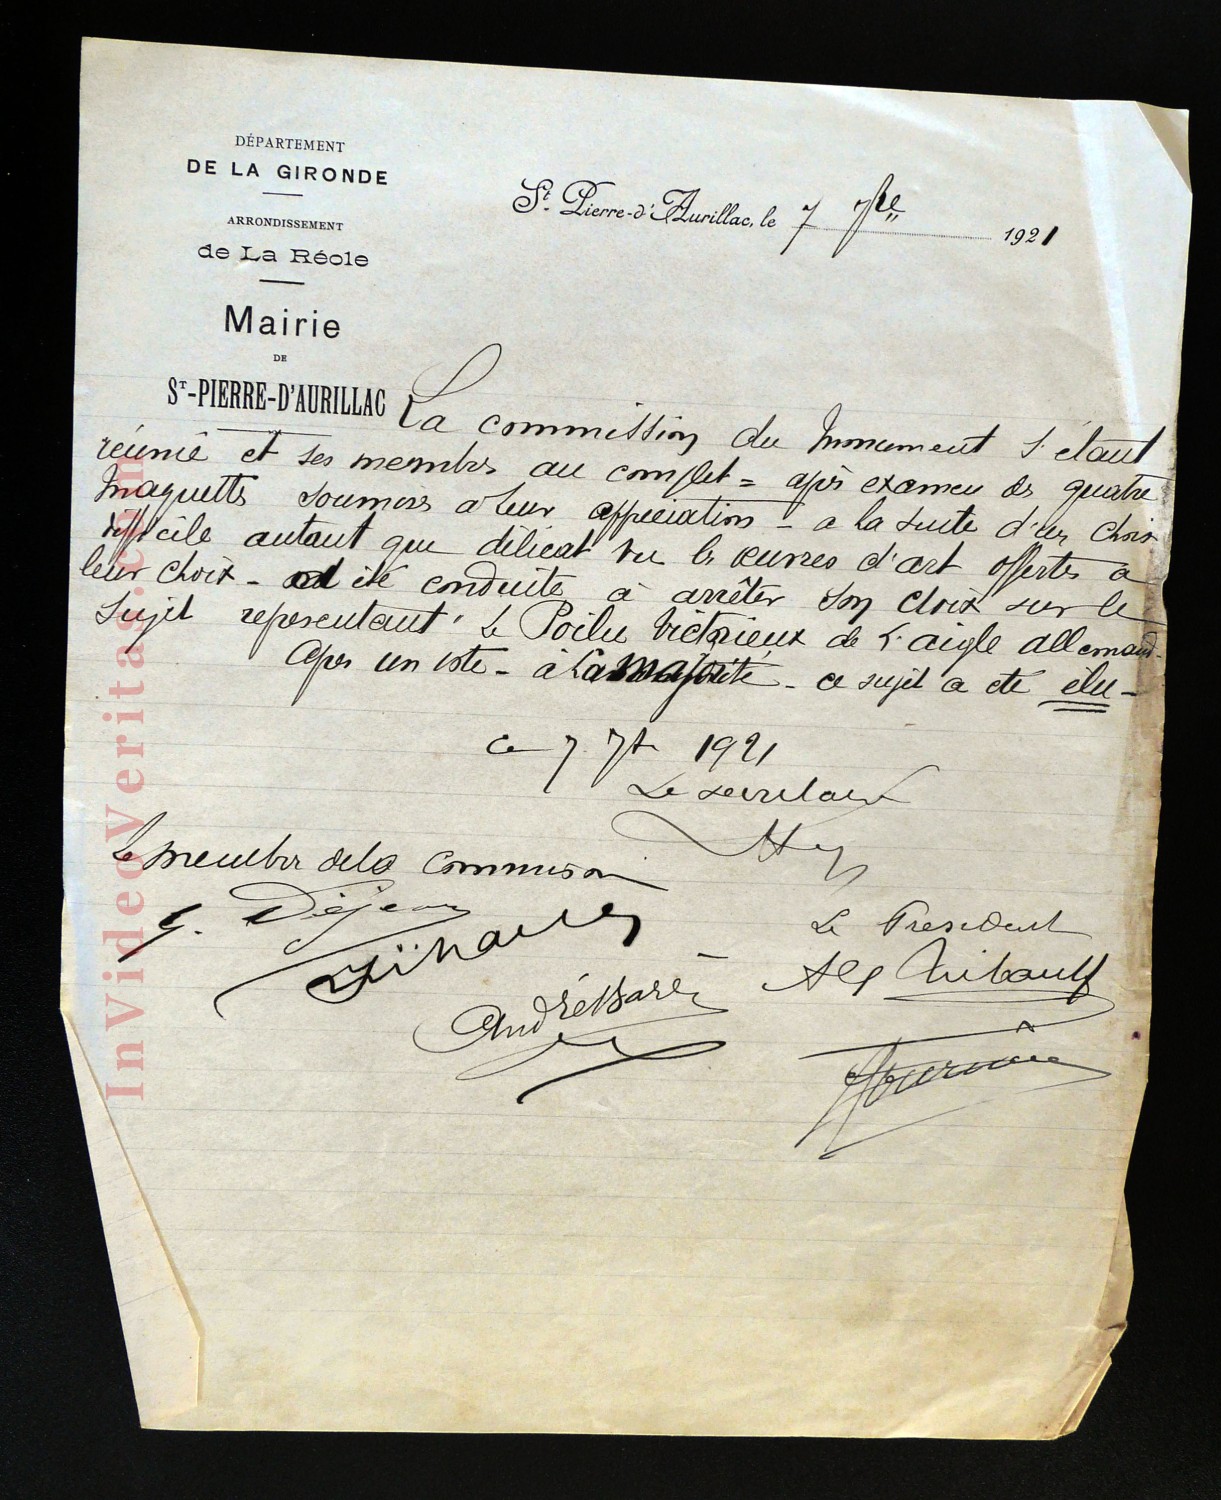 DÉPARTEMENT
DE LA GIRONDE
ARRONDISSEMENT
de La Réole
Mairie
DE
ST-PIERRE-D'AURILLAC
St-Pierre-d'Aurillac, le 7 7bre 1921
La commission du Monument s'étant
réunie et ses membres au complet = après examen des quatre
maquettes soumises a leur appréciation - a la suite d'un choix
difficile autant que délicat vu les œuvres d'art offertes a
leur choix - a été conduite à arrêter son choix sur le
sujet representant " Le Poilu Victorieux de l'aigle allemand -
Apres un vote - à la majorité - ce sujet a été élu -
ce 7 7bre 1921
Le secretaire
Les membres de la Commission
G. Dejean
André Barés
Le President
Alf Thibault
Fournier
InVideoVeritas